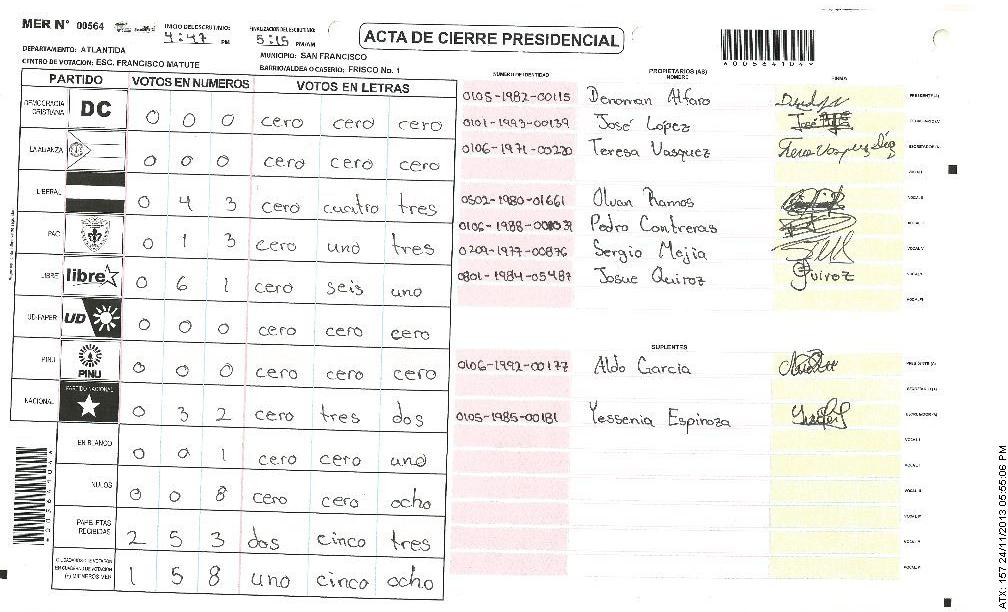 MER N° 00564
INICIO DEL ESCRUTINIO: 4:47 PM
FINALIZACION DEL ESCRUTINIO: 5:15 PM/AM
ACTA DE CIERRE PRESIDENCIAL
DEPARTAMENTO: ATLANTIDA
MUNICIPIO: SAN FRANCISCO
CENTRO DE VOTACION: ESC. FRANCISCO MATUTE
BARRIO/ALDEA O CASERIO: FRISCO No. 1
PARTIDO VOTOS EN NUMEROS VOTOS EN LETRAS
DEMOCRACIA CRISTIANA DC 0 0 0 cero cero cero
LA ALIANZA 0 0 0 cero cero cero
LIBERAL 0 4 3 cero cuatro tres
PAC 0 1 3 cero uno tres
LIBRE libre 0 6 1 cero seis uno
UD-FAPER UD 0 0 0 cero cero cero
PINU PINU 0 0 0 cero cero cero
NACIONAL PARTIDO NACIONAL 0 3 2 cero tres dos
EN BLANCO 0 0 1 cero cero uno
NULOS 0 0 8 cero cero ocho
PAPELETAS RECIBIDAS 2 5 3 dos cinco tres
1 5 8 uno cinco ocho
NUMERO DE IDENTIDAD PROPIETARIOS (AS) NOMBRE FIRMA
0105-1982-00115 Denoman Alfaro
0101-1993-00139 José López
0106-1971-00220 Teresa Vasquez
0502-1980-01661 Olvan Ramos
Pedro Contreras
0209-1977-00876 Sergio Mejia
0801-1984-05487 Josue Quiroz Quiroz
SUPLENTES
0106-1992-00177 Aldo Garcia
0105-1985-00181 Yessenia Espinoza
ATX: 157 24/11/2013 05:55:06 PM